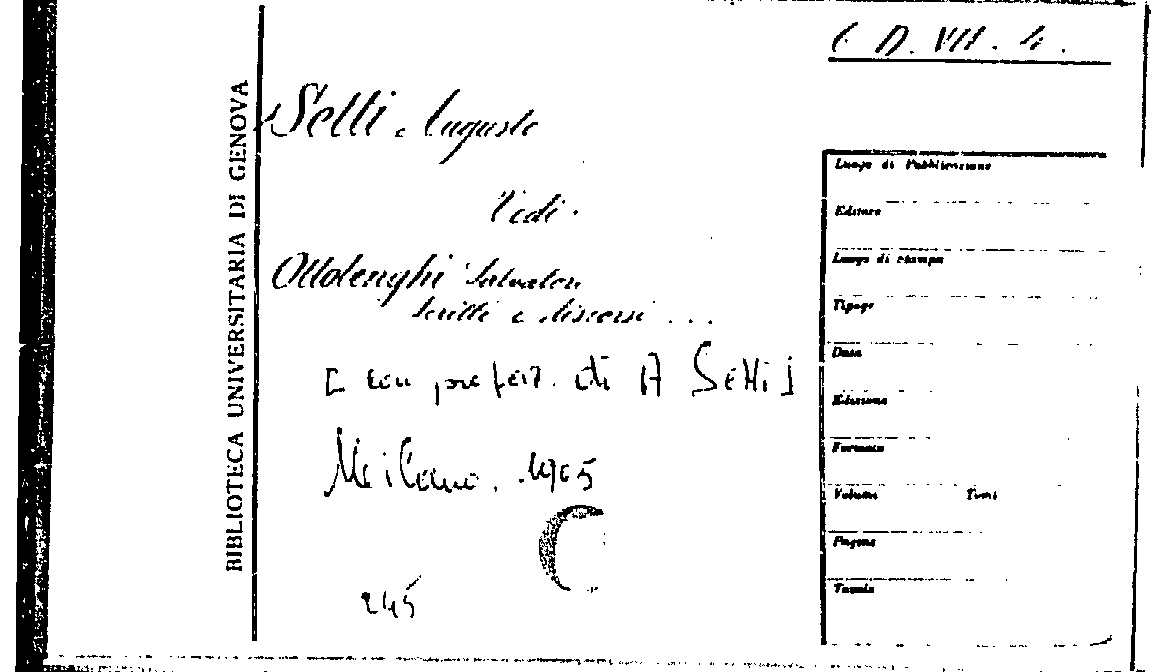 C D. VII. 4.
BIBLIOTECA UNIVERSITARIA DI GENOVA
Setti Augusto
Vedi
Ottolenghi Salvatore
Scritti e discorsi ...
[ con prefaz. di A Setti ]
Milano. 1905
245
Luogo di Pubblicazione
Editore
Luogo di stampa
Tipogr
Data
Edizione
Formato
Volumi Tomi
Pagine
Tavole